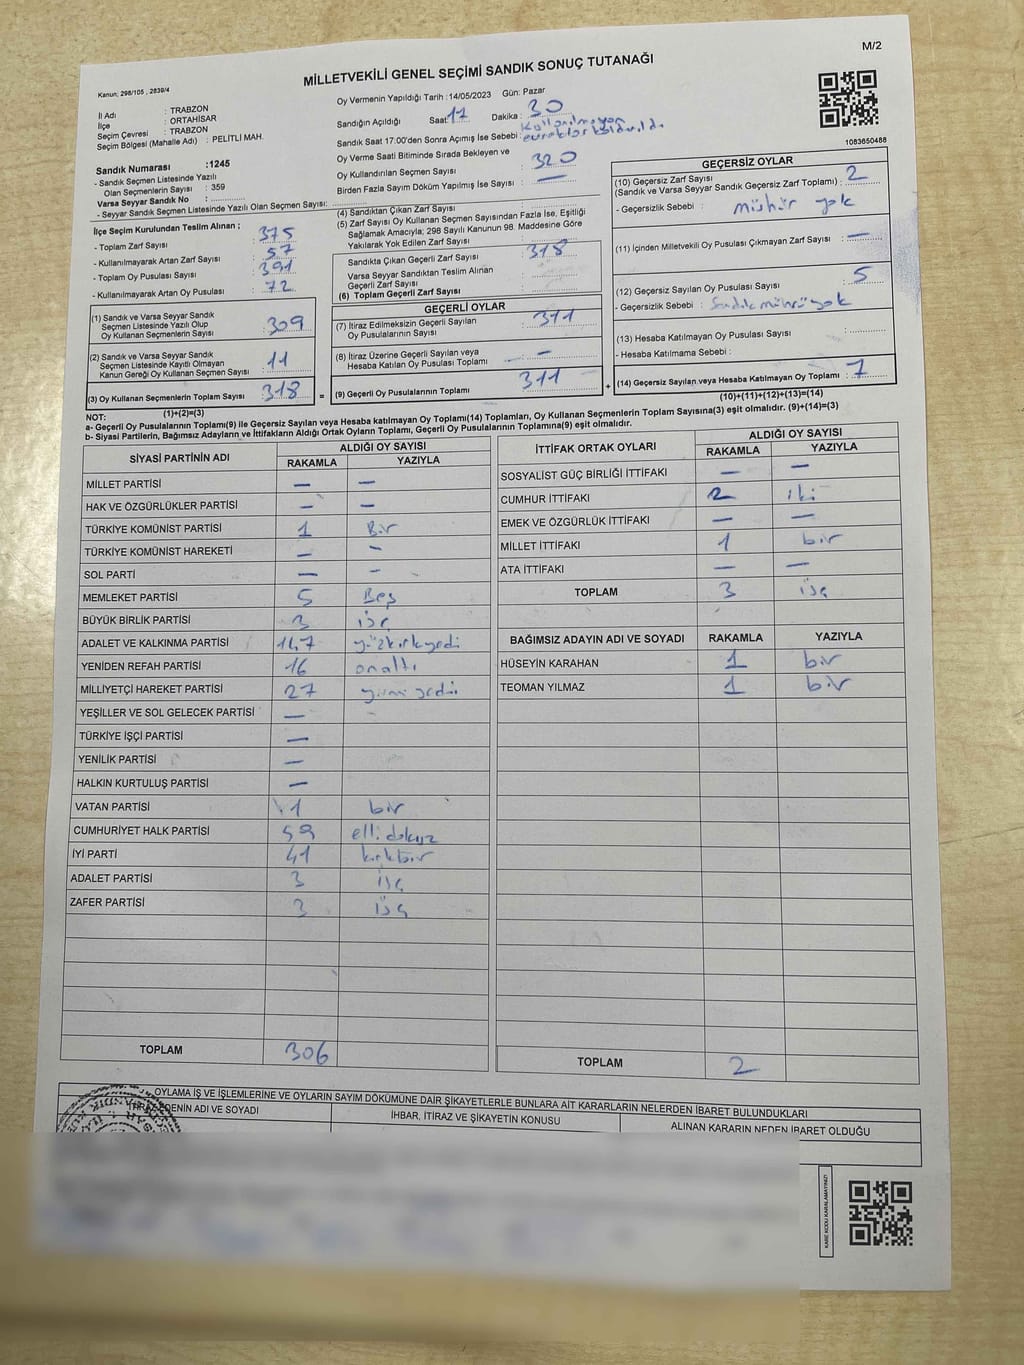 M/2
MİLLETVEKİLİ GENEL SEÇİMİ SANDIK SONUÇ TUTANAĞI
Kanun: 298/105 , 2839/4
İl Adı : TRABZON
İlçe : ORTAHİSAR
Seçim Çevresi : TRABZON
Seçim Bölgesi (Mahalle Adı) : PELİTLİ MAH.
Oy Vermenin Yapıldığı Tarih :14/05/2023 Gün: Pazar
Sandığın Açıldığı Saat: 17 Dakika : 30
Sandık Saat 17.00'den Sonra Açımış İse Sebebi : Kullanılmayan
kaldırıldı
Oy Verme Saati Bitiminde Sırada Bekleyen ve
Oy Kullandırılan Seçmen Sayısı : 320
Birden Fazla Sayım Döküm Yapılmış İse Sayısı : —
1083650488
Sandık Numarası :1245
- Sandık Seçmen Listesinde Yazılı
Olan Seçmenlerin Sayısı : 359
Varsa Seyyar Sandık No :
- Seyyar Sandık Seçmen Listesinde Yazılı Olan Seçmen Sayısı:
İlçe Seçim Kurulundan Teslim Alınan ;
- Toplam Zarf Sayısı : 375
- Kullanılmayarak Artan Zarf Sayısı : 57
- Toplam Oy Pusulası Sayısı : 391
- Kullanılmayarak Artan Oy Pusulası : 72
(1) Sandık ve Varsa Seyyar Sandık
Seçmen Listesinde Yazılı Olup
Oy Kullanan Seçmenlerin Sayısı : 309
(2) Sandık ve Varsa Seyyar Sandık
Seçmen Listesinde Kayıtlı Olmayan
Kanun Gereği Oy Kullanan Seçmen Sayısı : 11
(3) Oy Kullanan Seçmenlerin Toplam Sayısı : 318
(1)+(2)=(3)
(4) Sandıktan Çıkan Zarf Sayısı :
(5) Zarf Sayısı Oy Kullanan Seçmen Sayısından Fazla İse, Eşitliği
Sağlamak Amacıyla; 298 Sayılı Kanunun 98. Maddesine Göre
Yakılarak Yok Edilen Zarf Sayısı :
Sandıkta Çıkan Geçerli Zarf Sayısı : 318
Varsa Seyyar Sandıktan Teslim Alınan
Geçerli Zarf Sayısı :
(6) Toplam Geçerli Zarf Sayısı :
GEÇERLİ OYLAR
(7) İtiraz Edilmeksizin Geçerli Sayılan
Oy Pusulalarının Sayısı : 311
(8) İtiraz Üzerine Geçerli Sayılan veya
Hesaba Katılan Oy Pusulası Toplamı : —
= (9) Geçerli Oy Pusulalarının Toplamı : 311
GEÇERSİZ OYLAR
(10) Geçersiz Zarf Sayısı
(Sandık ve Varsa Seyyar Sandık Geçersiz Zarf Toplamı) : 2
- Geçersizlik Sebebi : mühür yok
(11) İçinden Milletvekili Oy Pusulası Çıkmayan Zarf Sayısı : —
(12) Geçersiz Sayılan Oy Pusulası Sayısı : 5
- Geçersizlik Sebebi : Sandık mührü yok
(13) Hesaba Katılmayan Oy Pusulası Sayısı :
- Hesaba Katılmama Sebebi :
+ (14) Geçersiz Sayılan veya Hesaba Katılmayan Oy Toplamı : 7
(10)+(11)+(12)+(13)=(14)
NOT:
a- Geçerli Oy Pusulalarının Toplamı(9) ile Geçersiz Sayılan veya Hesaba katılmayan Oy Toplamı(14) Toplamları, Oy Kullanan Seçmenlerin Toplam Sayısına(3) eşit olmalıdır. (9)+(14)=(3)
b- Siyasi Partilerin, Bağımsız Adayların ve İttifakların Aldığı Ortak Oyların Toplamı, Geçerli Oy Pusulalarının Toplamına(9) eşit olmalıdır.
SİYASİ PARTİNİN ADI ALDIĞI OY SAYISI
RAKAMLA YAZIYLA
MİLLET PARTİSİ — —
HAK VE ÖZGÜRLÜKLER PARTİSİ — —
TÜRKİYE KOMÜNİST PARTİSİ 1 Bir
TÜRKİYE KOMÜNİST HAREKETİ — —
SOL PARTİ — —
MEMLEKET PARTİSİ 5 Beş
BÜYÜK BİRLİK PARTİSİ 3 üç
ADALET VE KALKINMA PARTİSİ 147 yüzkırkyedi
YENİDEN REFAH PARTİSİ 16 onaltı
MİLLİYETÇİ HAREKET PARTİSİ 27 yirmi yedi
YEŞİLLER VE SOL GELECEK PARTİSİ —
TÜRKİYE İŞÇİ PARTİSİ —
YENİLİK PARTİSİ —
HALKIN KURTULUŞ PARTİSİ —
VATAN PARTİSİ 1 bir
CUMHURİYET HALK PARTİSİ 59 elli dokuz
İYİ PARTİ 41 kırkbir
ADALET PARTİSİ 3 üç
ZAFER PARTİSİ 3 üç
TOPLAM 306
İTTİFAK ORTAK OYLARI ALDIĞI OY SAYISI
RAKAMLA YAZIYLA
SOSYALİST GÜÇ BİRLİĞİ İTTİFAKI — —
CUMHUR İTTİFAKI 2 iki
EMEK VE ÖZGÜRLÜK İTTİFAKI — —
MİLLET İTTİFAKI 1 bir
ATA İTTİFAKI — —
TOPLAM 3 üç
BAĞIMSIZ ADAYIN ADI VE SOYADI RAKAMLA YAZIYLA
HÜSEYİN KARAHAN 1 bir
TEOMAN YILMAZ 1 bir
TOPLAM 2
OYLAMA İŞ VE İŞLEMLERİNE VE OYLARIN SAYIM DÖKÜMÜNE DAİR ŞİKAYETLERLE BUNLARA AİT KARARLARIN NELERDEN İBARET BULUNDUKLARI
EDENİN ADI VE SOYADI İHBAR, İTİRAZ VE ŞİKAYETİN KONUSU ALINAN KARARIN NEDEN İBARET OLDUĞU
KARE KODU KARALAMAYINIZ!